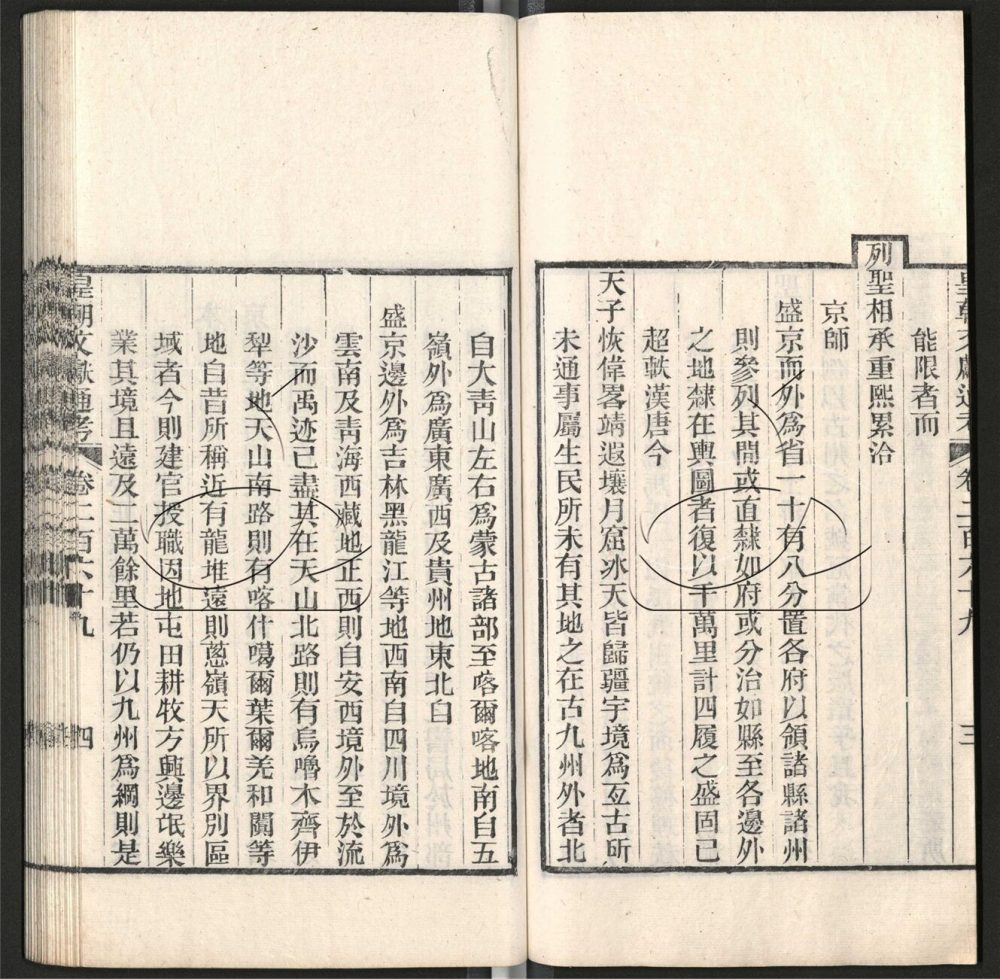 皇朝文獻通考 卷二百六十九 三
能限者而
列聖相承重熙累洽
京師
盛京而外爲省一十有八分置各府以領諸縣諸州
則參列其閒或直隸如府或分治如縣至各邊外
之地隸在輿圖者復以千萬里計四履之盛固已
超軼漢唐今
天子恢偉畧靖遐壤月窟冰天皆歸疆宇境爲亙古所
未通事屬生民所未有其地之在古九州外者北
自大靑山左右爲蒙古諸部至喀爾喀地南自五
嶺外爲廣東廣西及貴州地東北自
盛京邊外爲吉林黑龍江等地西南自四川境外爲
雲南及靑海西藏地正西則自安西境外至於流
沙而禹迹已盡其在天山北路則有烏嚕木齊伊
犂等地天山南路則有喀什噶爾葉爾羌和闐等
地自昔所稱近有龍堆遠則蔥嶺天所以界別區
域者今則建官授職因地屯田耕牧方興邊氓樂
業其境且遠及二萬餘里若仍以九州爲綱則是
皇朝文獻通考 卷二百六十九 四